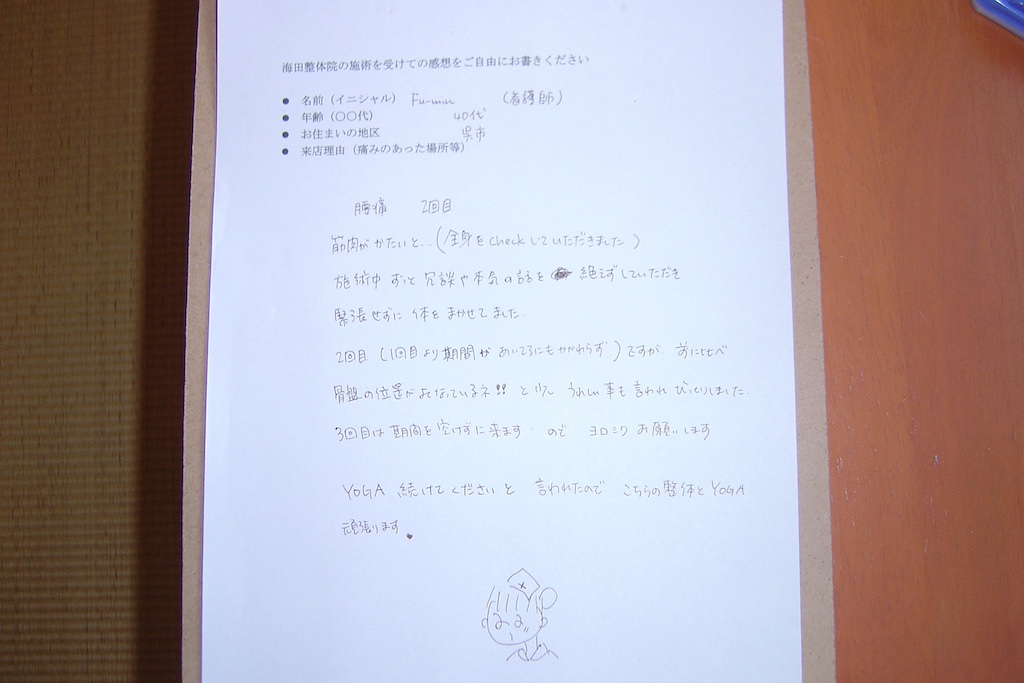 海田整体院の施術を受けての感想をご自由にお書きください
● 名前（イニシャル） Fu-min （看護師）
● 年齢（〇〇代） 40代
● お住まいの地区 呉市
● 来店理由（痛みのあった場所等）
腰痛 2回目
筋肉がかたいと…（全身をcheckしていただきました）
施術中 ずっと 冗談や本気の話を 絶えずしていただき
緊張せずに 体を まかせてました.
2回目（1回目より期間が あいてるにもかかわらず）ですが 前に比べ
骨盤の位置がよくなっているネ!! と少し うれしい事も言われ びっくりしました.
3回目は期間を空けずに来ます. ので ヨロシク お願いします
YOGA 続けてくださいと 言われたので こちらの整体とYOGA
頑張ります